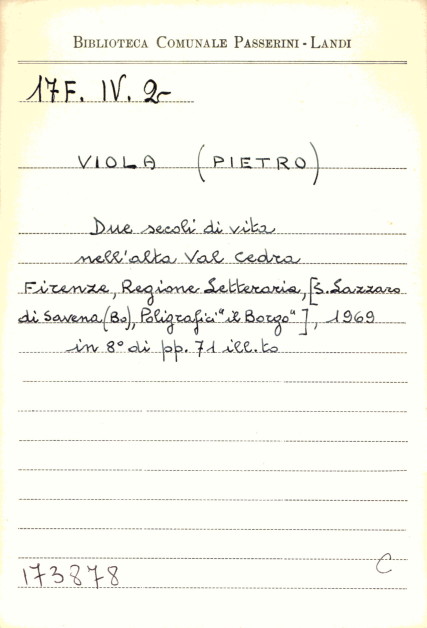 BIBLIOTECA COMUNALE PASSERINI - LANDI
17F. IV. 2
VIOLA (PIETRO)
Due secoli di vita
nell'alta Val Cedra
Firenze, Regione Letteraria, [S. Lazzaro
di Savena (Bo), Poligrafici "il Borgo"], 1969
in 8° di pp. 71 ill.to
173878
C